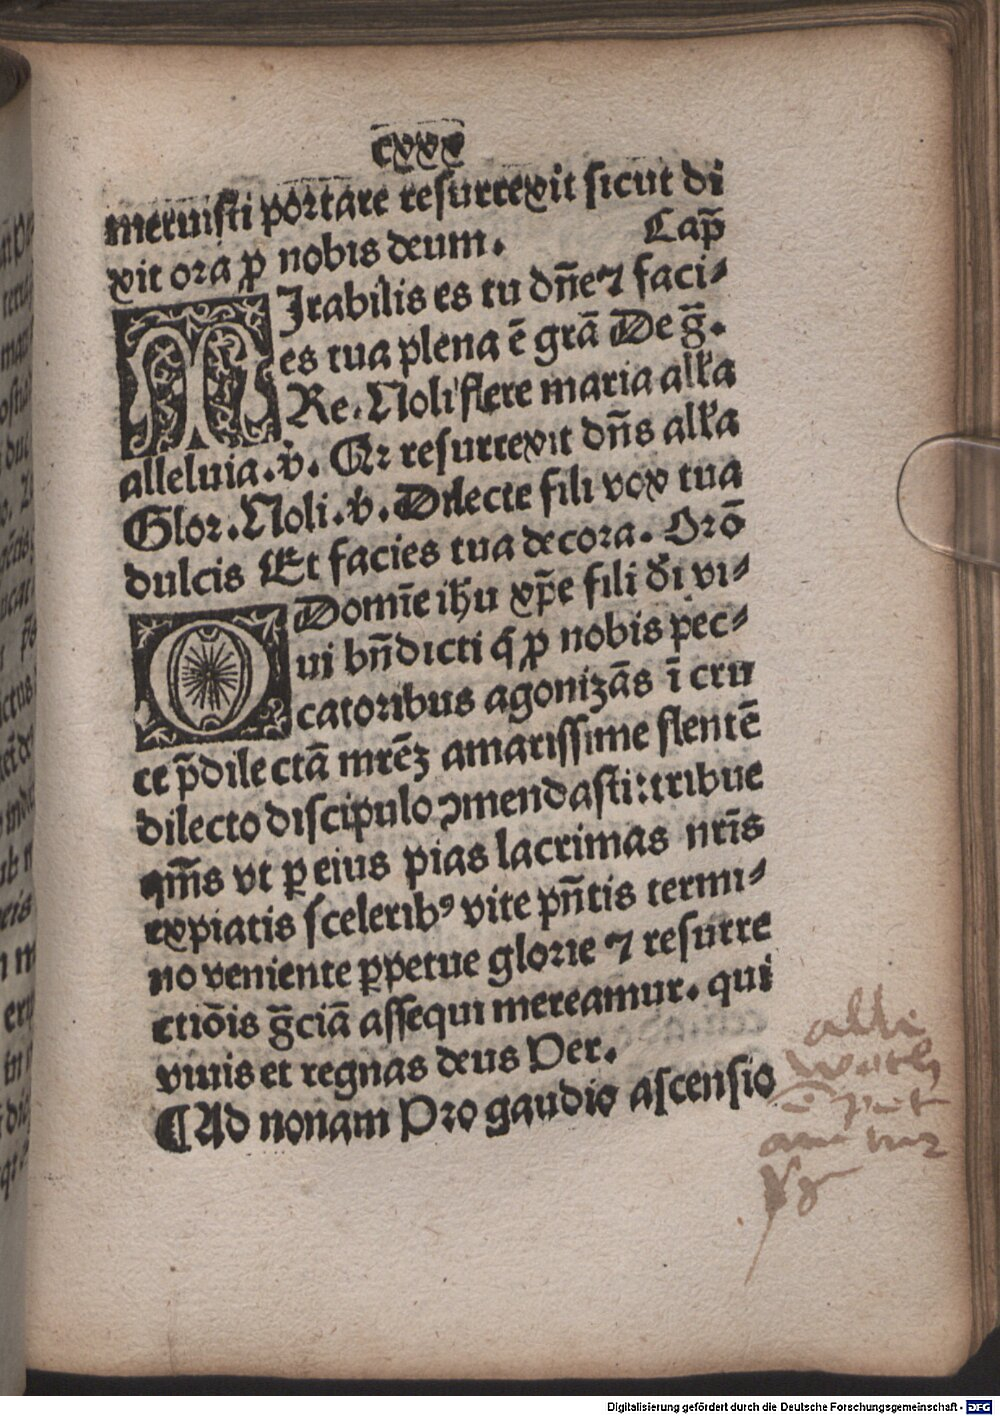 cxxx
meruisti portare resurrexit sicut di
xit ora ꝓ nobis deum. Cap̄
MIrabilis es tu dn̄e ⁊ faci⸗
es tua plena ē gr̄a De ḡ.
Re. Noli flere maria all'a
alleluia. v̄. Qꝛ resurrexit dn̄s all'a
Glor. Noli. v̄. Dilecte fili vox tua
dulcis Et facies tua decora. Orō
O Domīe ih̄u xp̄e fili d̄i vi⸗
ui bn̄dicti q̄ ꝓ nobis pec⸗
catoribus agonizās ī cru
ce p̄dilectā mrēꝫ amarissime flentē
dilecto discipulo ꝯmendasti: tribue
qm̄s vt ꝑ eius pias lacrimas nr̄is
expiatis scelerib⁹ vite pn̄tis termi⸗
no veniente ꝑpetue glorie ⁊ resurre
ctiōis gr̄ciā assequi mereamur. qui
viuis et regnas deus Per.
¶Ad nonam Pro gaudio ascensio
Digitalisierung gefördert durch die Deutsche Forschungsgemeinschaft - DFG